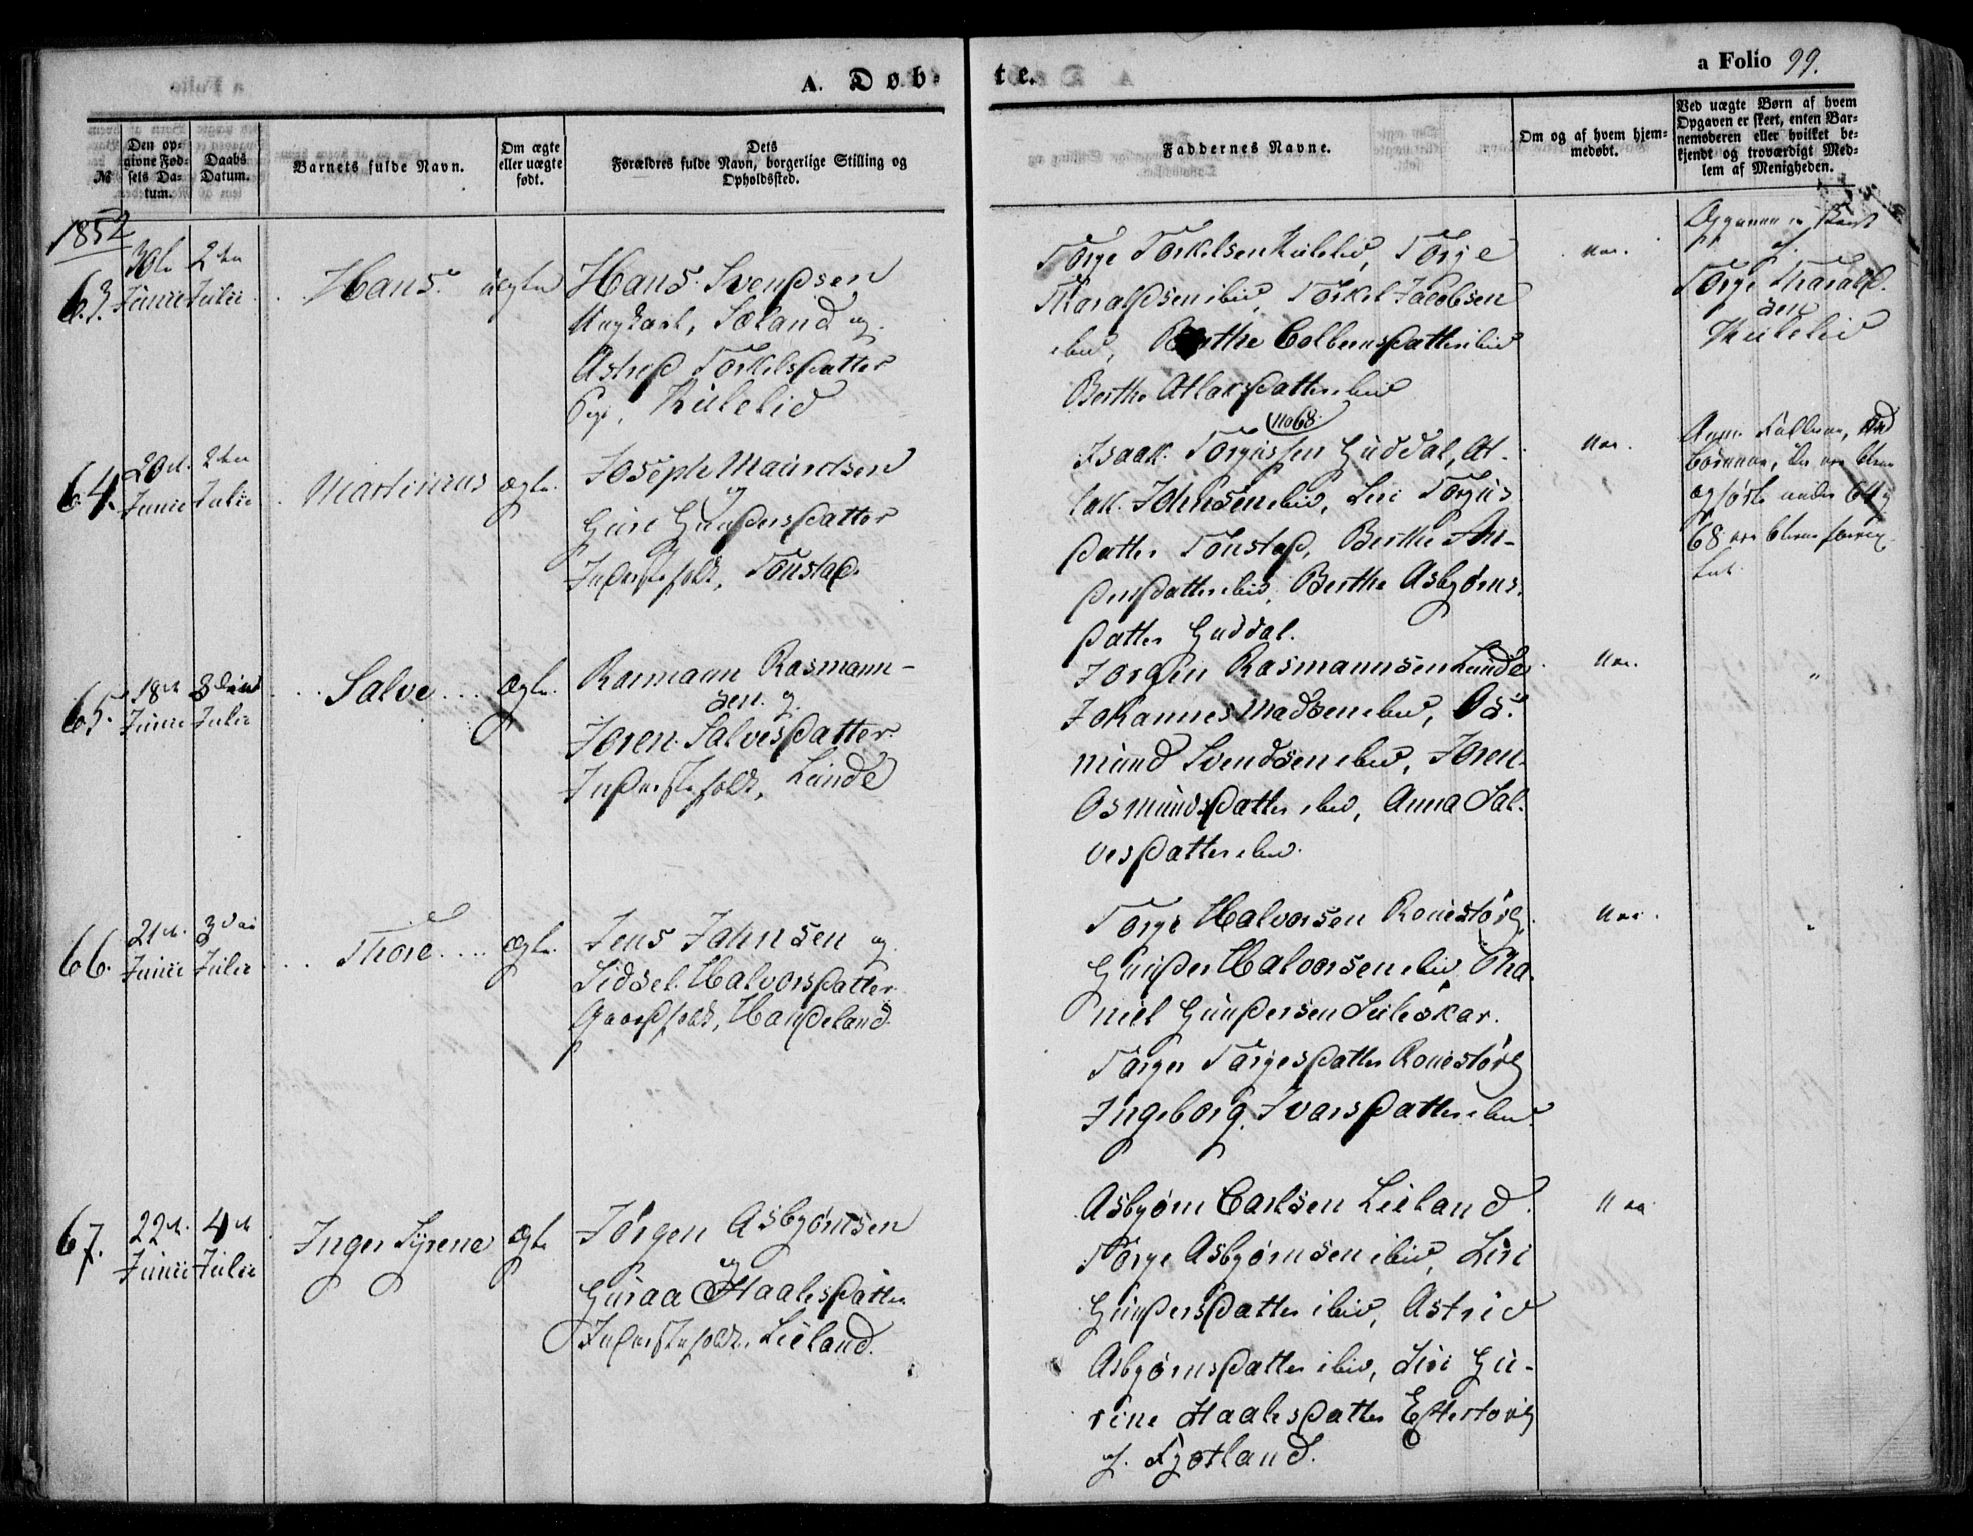 A. Døb-
te.
a Folio 99.
№
Den op-
givne Fød-
sels Da-
tum.
Daabs
Datum.
Barnets fulde Navn.
Om ægte
eller uægte
født.
Dets
Forældres fulde Navn, borgerlige Stilling og
Opholdssted.
Faddernes Navne.
Om og af hvem hjem-
medøbt.
Ved uægte Børn af hvem
Opgaven er skeet, enten Bar-
nemoderen eller hvilket be-
kjendt og troværdigt Med-
lem af Menigheden.
1852
63.
Junii
2den
Julii
Hans.
uægte
Hans Svendsen
Ungkarl, Sæland og
Astred Torkelsdatter
Pige, Kulelid
Torge Torkelsen Kulelid, Torge
Tharaldsen ibid, Torkel Jacobsen
ibid, Berthe Colbensdatter ibid
Berthe Atlaksdatter ibid
Opgaven er skeet
af
Torge Tharald-
sen
Kulelid
64.
20de
Junii
2den
Julii
Martinius
Ægte.
Joseph Mauridsen
og
Guri Gundersdatter
Inderstefolk, Tonstad.
No 68
Isaak Torgussen Guddal, At-
lak Johnsen ibid, Siri Torgus
datter Tonstad, Berthe
datter ibid, Berthe Asbjørns
datter Guddal.
Anm. Fadderne,
og
68 ere blevne
65.
18de
Junii
Julii
Salve
Ægte.
Rasmann Rasmann-
sen og
Joren Salvesdatter
Inderstefolk, Lunde
Jørgen Rasmannsen Lunde
Johannes Madsen ibid, Os-
mund Svendsen ibid, Joren
Osmundsdatter ibid, Anna Sal-
vesdatter ibid.
66.
21de
Junii
3die
Julii
Thore
Ægte.
Jens Johnsen og
Sidsel Halvorsdatter
Gaardfolk, Haudeland
Torge Halvorsen
Gunder Halvorsen ibid,
niel Gundersen Suleskar.
Torger Torgesdatter
Ingeborg Ivarsdatter ibid
67.
22de
Junii
4de
Julii
Inger Syrene
Ægte
Jørgen Asbjørnsen
og
Guraa Haalesdatter
Inderstefolk, Lieland.
Asbjørn Carlsen Lieland
Torge Asbjørnsen ibid, Siri
Gundersdatter ibid, Astrid
Asbjørnsdatter ibid, Siri Gu-
rine Haalesdatter
af Fjotland.